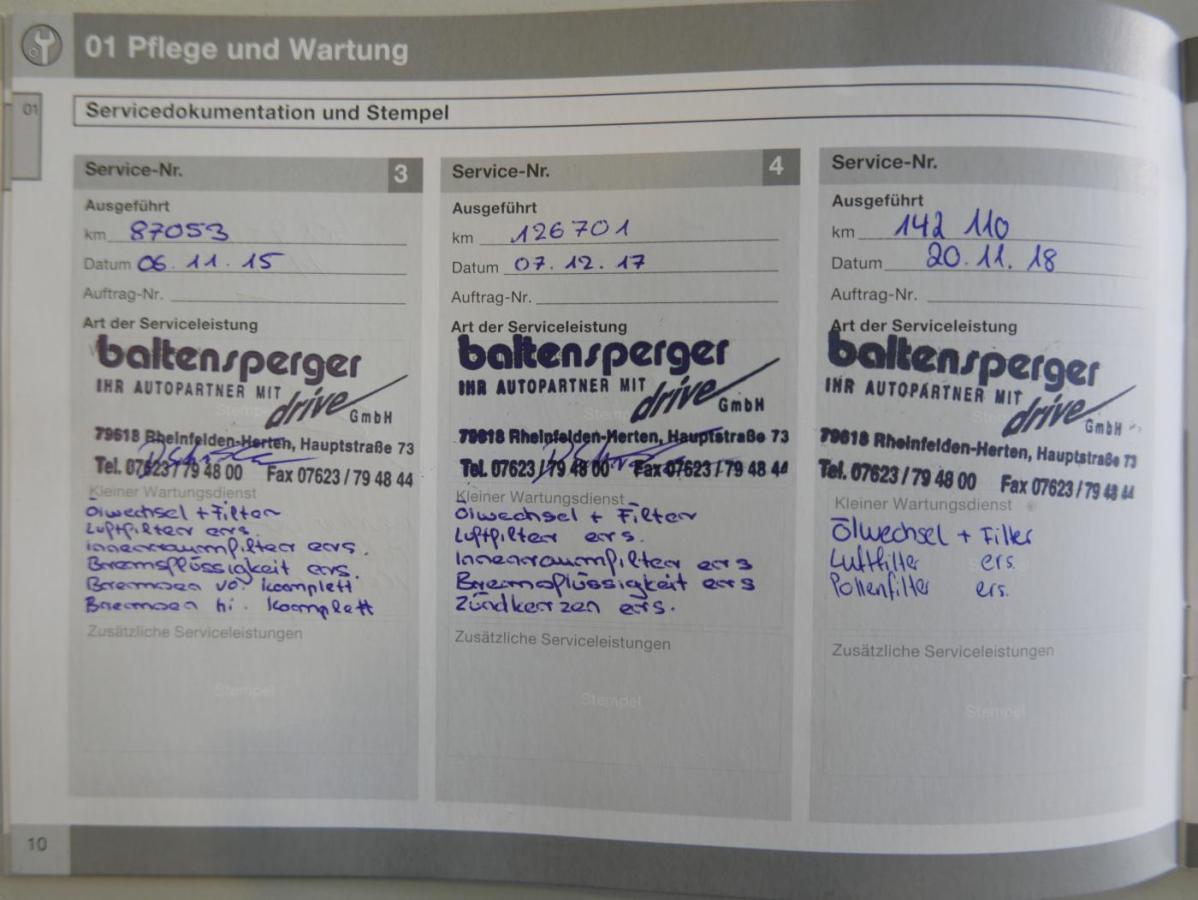 01 Pflege und Wartung
01
Servicedokumentation und Stempel
Service-Nr. 3
Ausgeführt
km 87053
Datum 06.11.15
Auftrag-Nr.
Art der Serviceleistung
baltensperger
IHR AUTOPARTNER MIT
drive GmbH
79618 Rheinfelden-Herten, Hauptstraße 73
Tel. 07623/79 48 00 Fax 07623/79 48 44
Kleiner Wartungsdienst
Ölwechsel + Filter
Luftfilter ers.
Innenraumfilter ers.
Bremsflüssigkeit ers.
Bremsen vo. komplett
Bremsen hi. komplett
Zusätzliche Serviceleistungen
Stempel
Service-Nr. 4
Ausgeführt
km 126701
Datum 07.12.17
Auftrag-Nr.
Art der Serviceleistung
baltensperger
IHR AUTOPARTNER MIT
drive GmbH
79618 Rheinfelden-Herten, Hauptstraße 73
Tel. 07623/79 48 00 Fax 07623/79 48 44
Kleiner Wartungsdienst
Ölwechsel + Filter
Luftfilter ers.
Innenraumfilter ers
Bremsflüssigkeit ers
Zündkerzen ers.
Zusätzliche Serviceleistungen
Stempel
Service-Nr.
Ausgeführt
km 142 110
Datum 20.11.18
Auftrag-Nr.
Art der Serviceleistung
baltensperger
IHR AUTOPARTNER MIT
drive GmbH
79618 Rheinfelden-Herten, Hauptstraße 73
Tel. 07623/79 48 00 Fax 07623/79 48 44
Kleiner Wartungsdienst
Ölwechsel + Filter
Luftfilter ers.
Pollenfilter ers.
Zusätzliche Serviceleistungen
Stempel
10